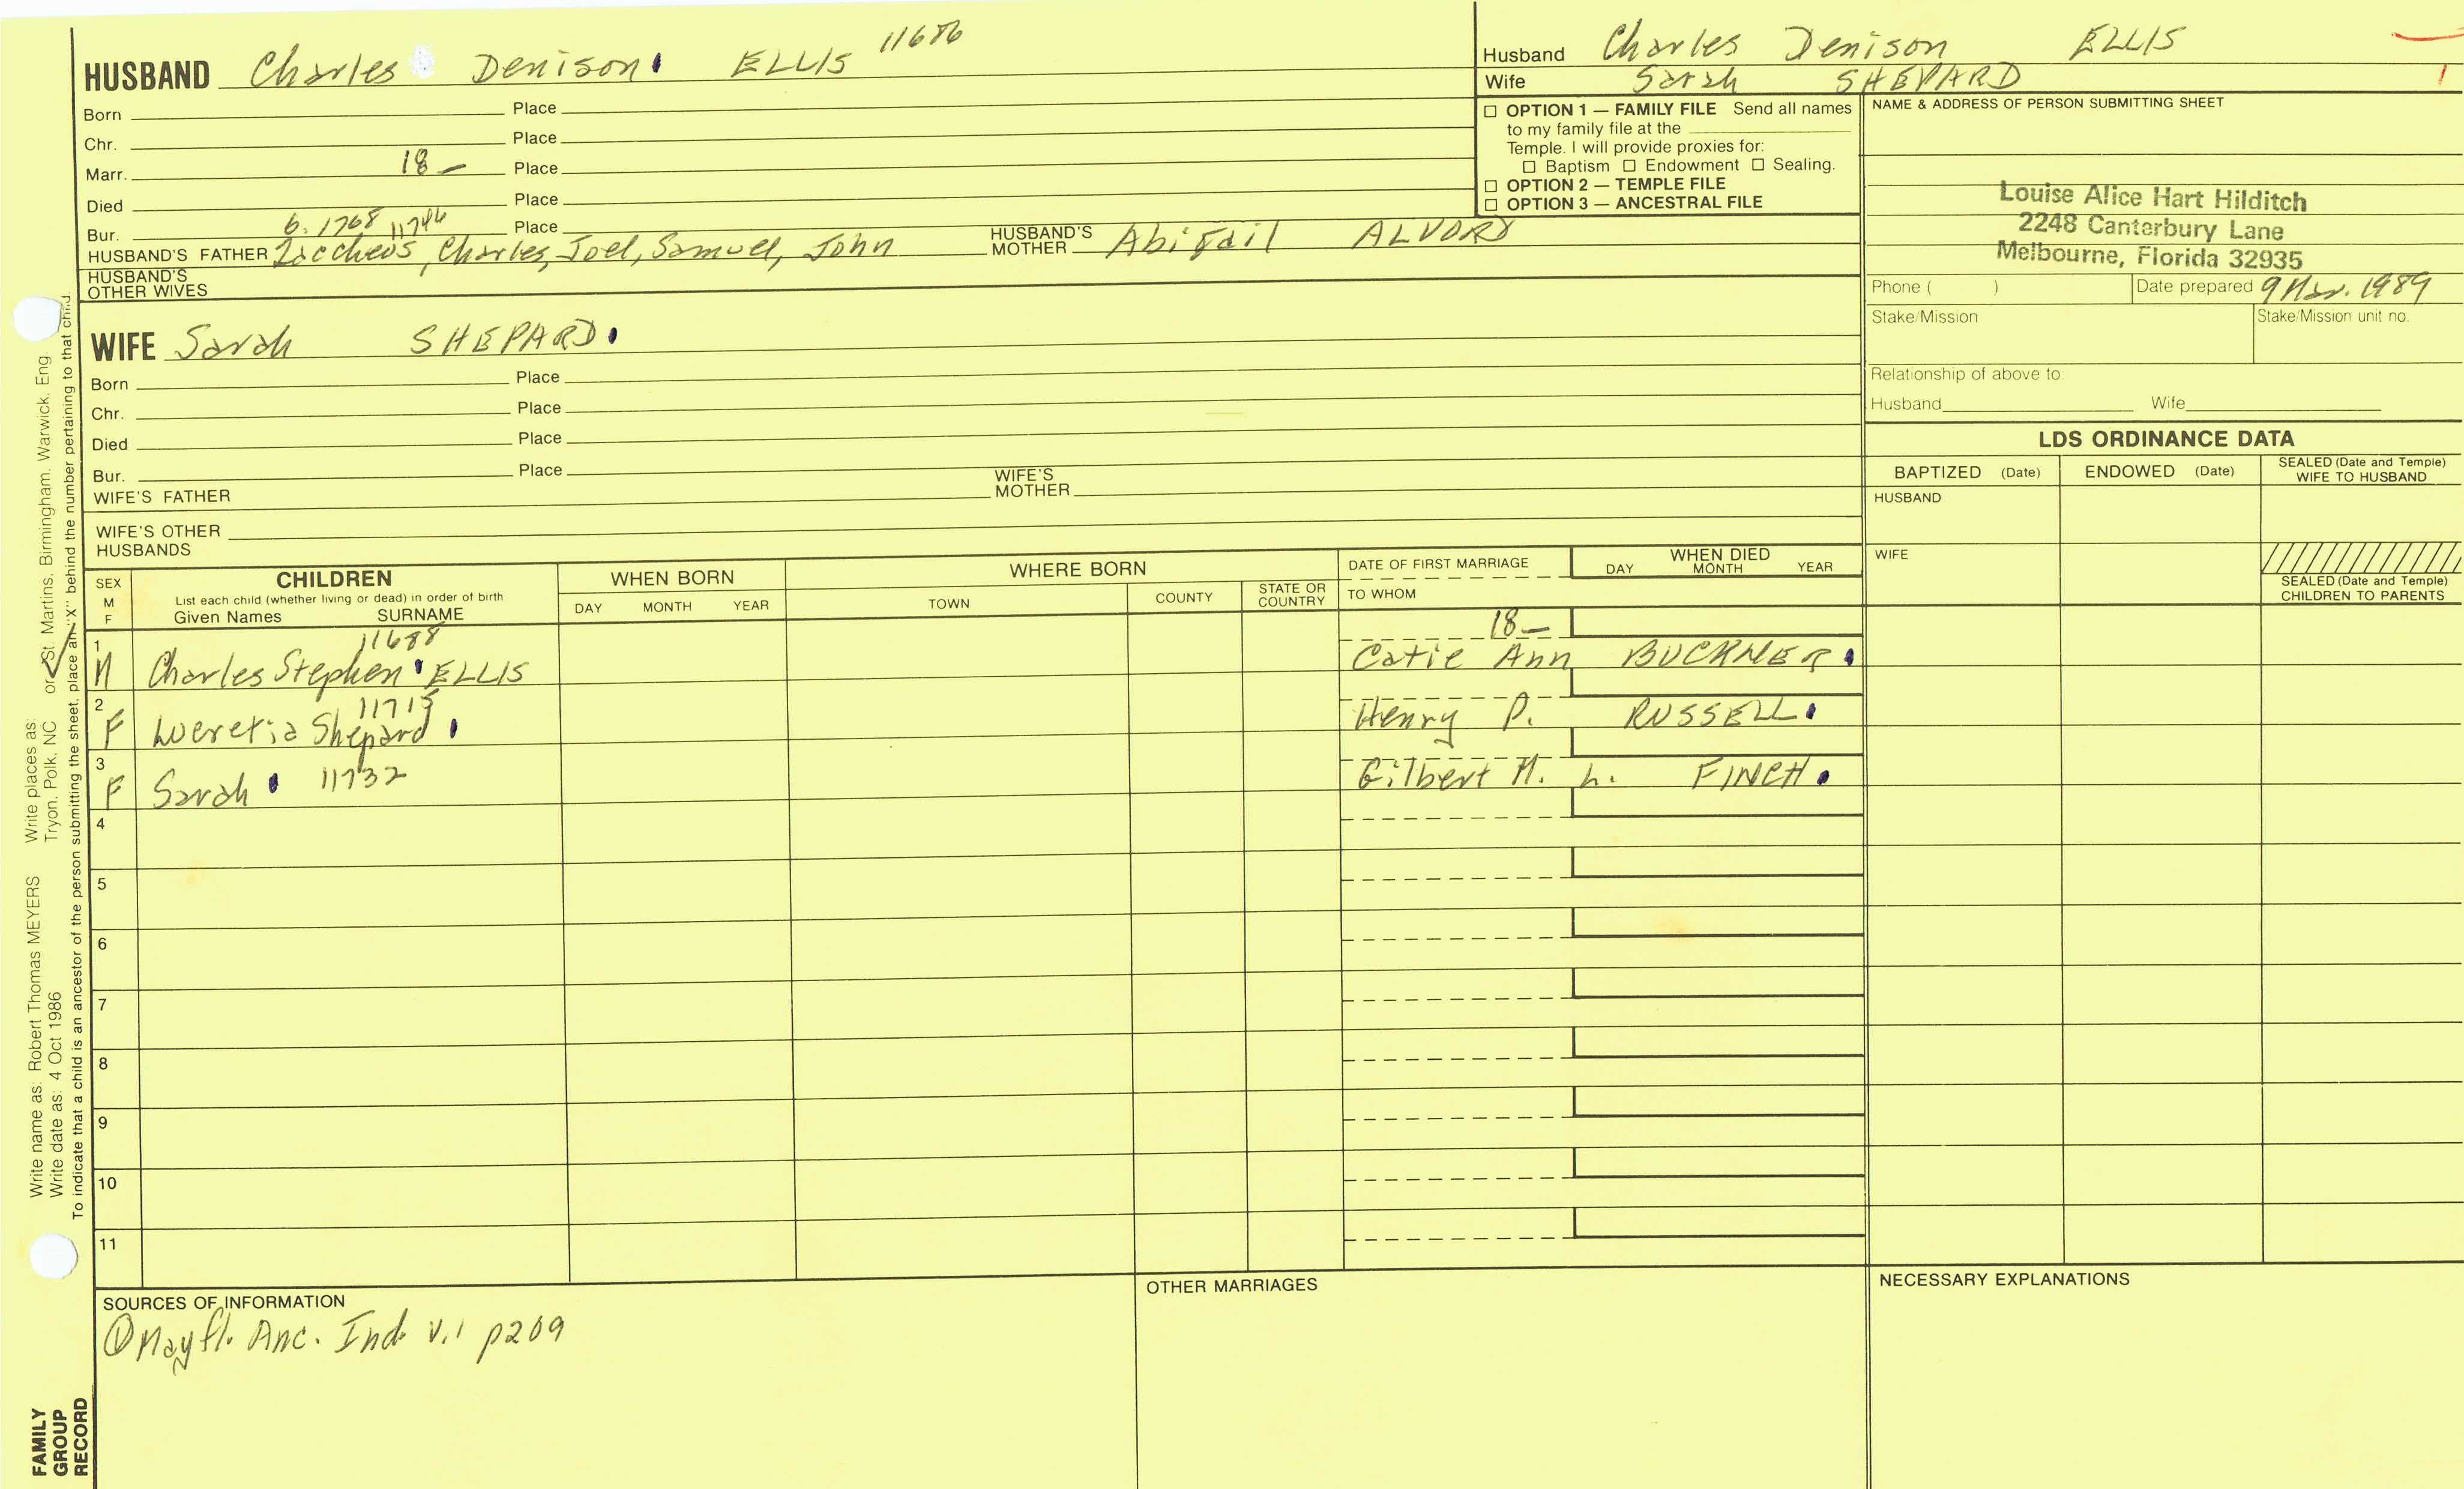 HUSBAND Charles Denison ELLIS 11686
Born Place
Chr. Place
Marr. 18— Place
Died Place
Bur. Place
b. 1768 11746
HUSBAND'S FATHER Zaccheus, Charles, Joel, Samuel, John HUSBAND'S MOTHER Abigail ALVORD
HUSBAND'S OTHER WIVES
Husband Charles Denison ELLIS
Wife Sarah SHEPARD
☐ OPTION 1 — FAMILY FILE Send all names
to my family file at the
Temple. I will provide proxies for:
☐ Baptism ☐ Endowment ☐ Sealing.
☐ OPTION 2 — TEMPLE FILE
☐ OPTION 3 — ANCESTRAL FILE
NAME & ADDRESS OF PERSON SUBMITTING SHEET
Louise Alice Hart Hilditch
2248 Canterbury Lane
Melbourne, Florida 32935
Phone ( ) Date prepared 9 Mar. 1989
Stake/Mission Stake/Mission unit no.
Relationship of above to:
Husband Wife
WIFE Sarah SHEPARD
Born Place
Chr. Place
Died Place
Bur. Place
WIFE'S FATHER WIFE'S MOTHER
WIFE'S OTHER HUSBANDS
LDS ORDINANCE DATA
BAPTIZED (Date) ENDOWED (Date) SEALED (Date and Temple) WIFE TO HUSBAND
HUSBAND
WIFE
SEALED (Date and Temple) CHILDREN TO PARENTS
SEX M F
CHILDREN
List each child (whether living or dead) in order of birth
Given Names SURNAME
WHEN BORN
DAY MONTH YEAR
WHERE BORN
TOWN COUNTY STATE OR COUNTRY
DATE OF FIRST MARRIAGE
TO WHOM
WHEN DIED
DAY MONTH YEAR
1 11688 18—
M Charles Stephen ELLIS Catie Ann BUCKNER
2 11715
F Lucretia Shepard Henry P. RUSSELL
3
F Sarah 11732 Gilbert M. L. FINCH
4
5
6
7
8
9
10
11
SOURCES OF INFORMATION
① Mayfl. Anc. Ind. v.1 p209
OTHER MARRIAGES
NECESSARY EXPLANATIONS
Write name as: Robert Thomas MEYERS Write places as:
Write date as: 4 Oct 1986 Tryon, Polk, NC or St. Martins, Birmingham, Warwick, Eng.
To indicate that a child is an ancestor of the person submitting the sheet, place an "X" behind the number pertaining to that child.
FAMILY
GROUP
RECORD